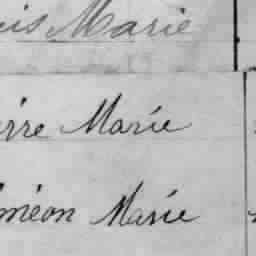 uis Marie
ierre Marie
iméon Marie